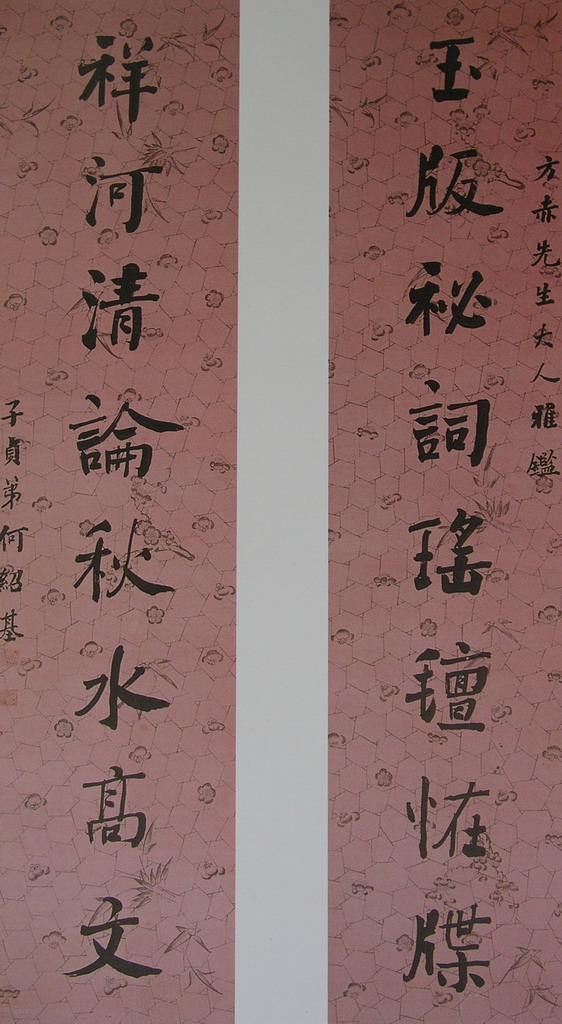 方赤先生大人雅鑑
玉版秘詞瑤氊恠牒
祥河清論秋水高文
子貞弟何紹基